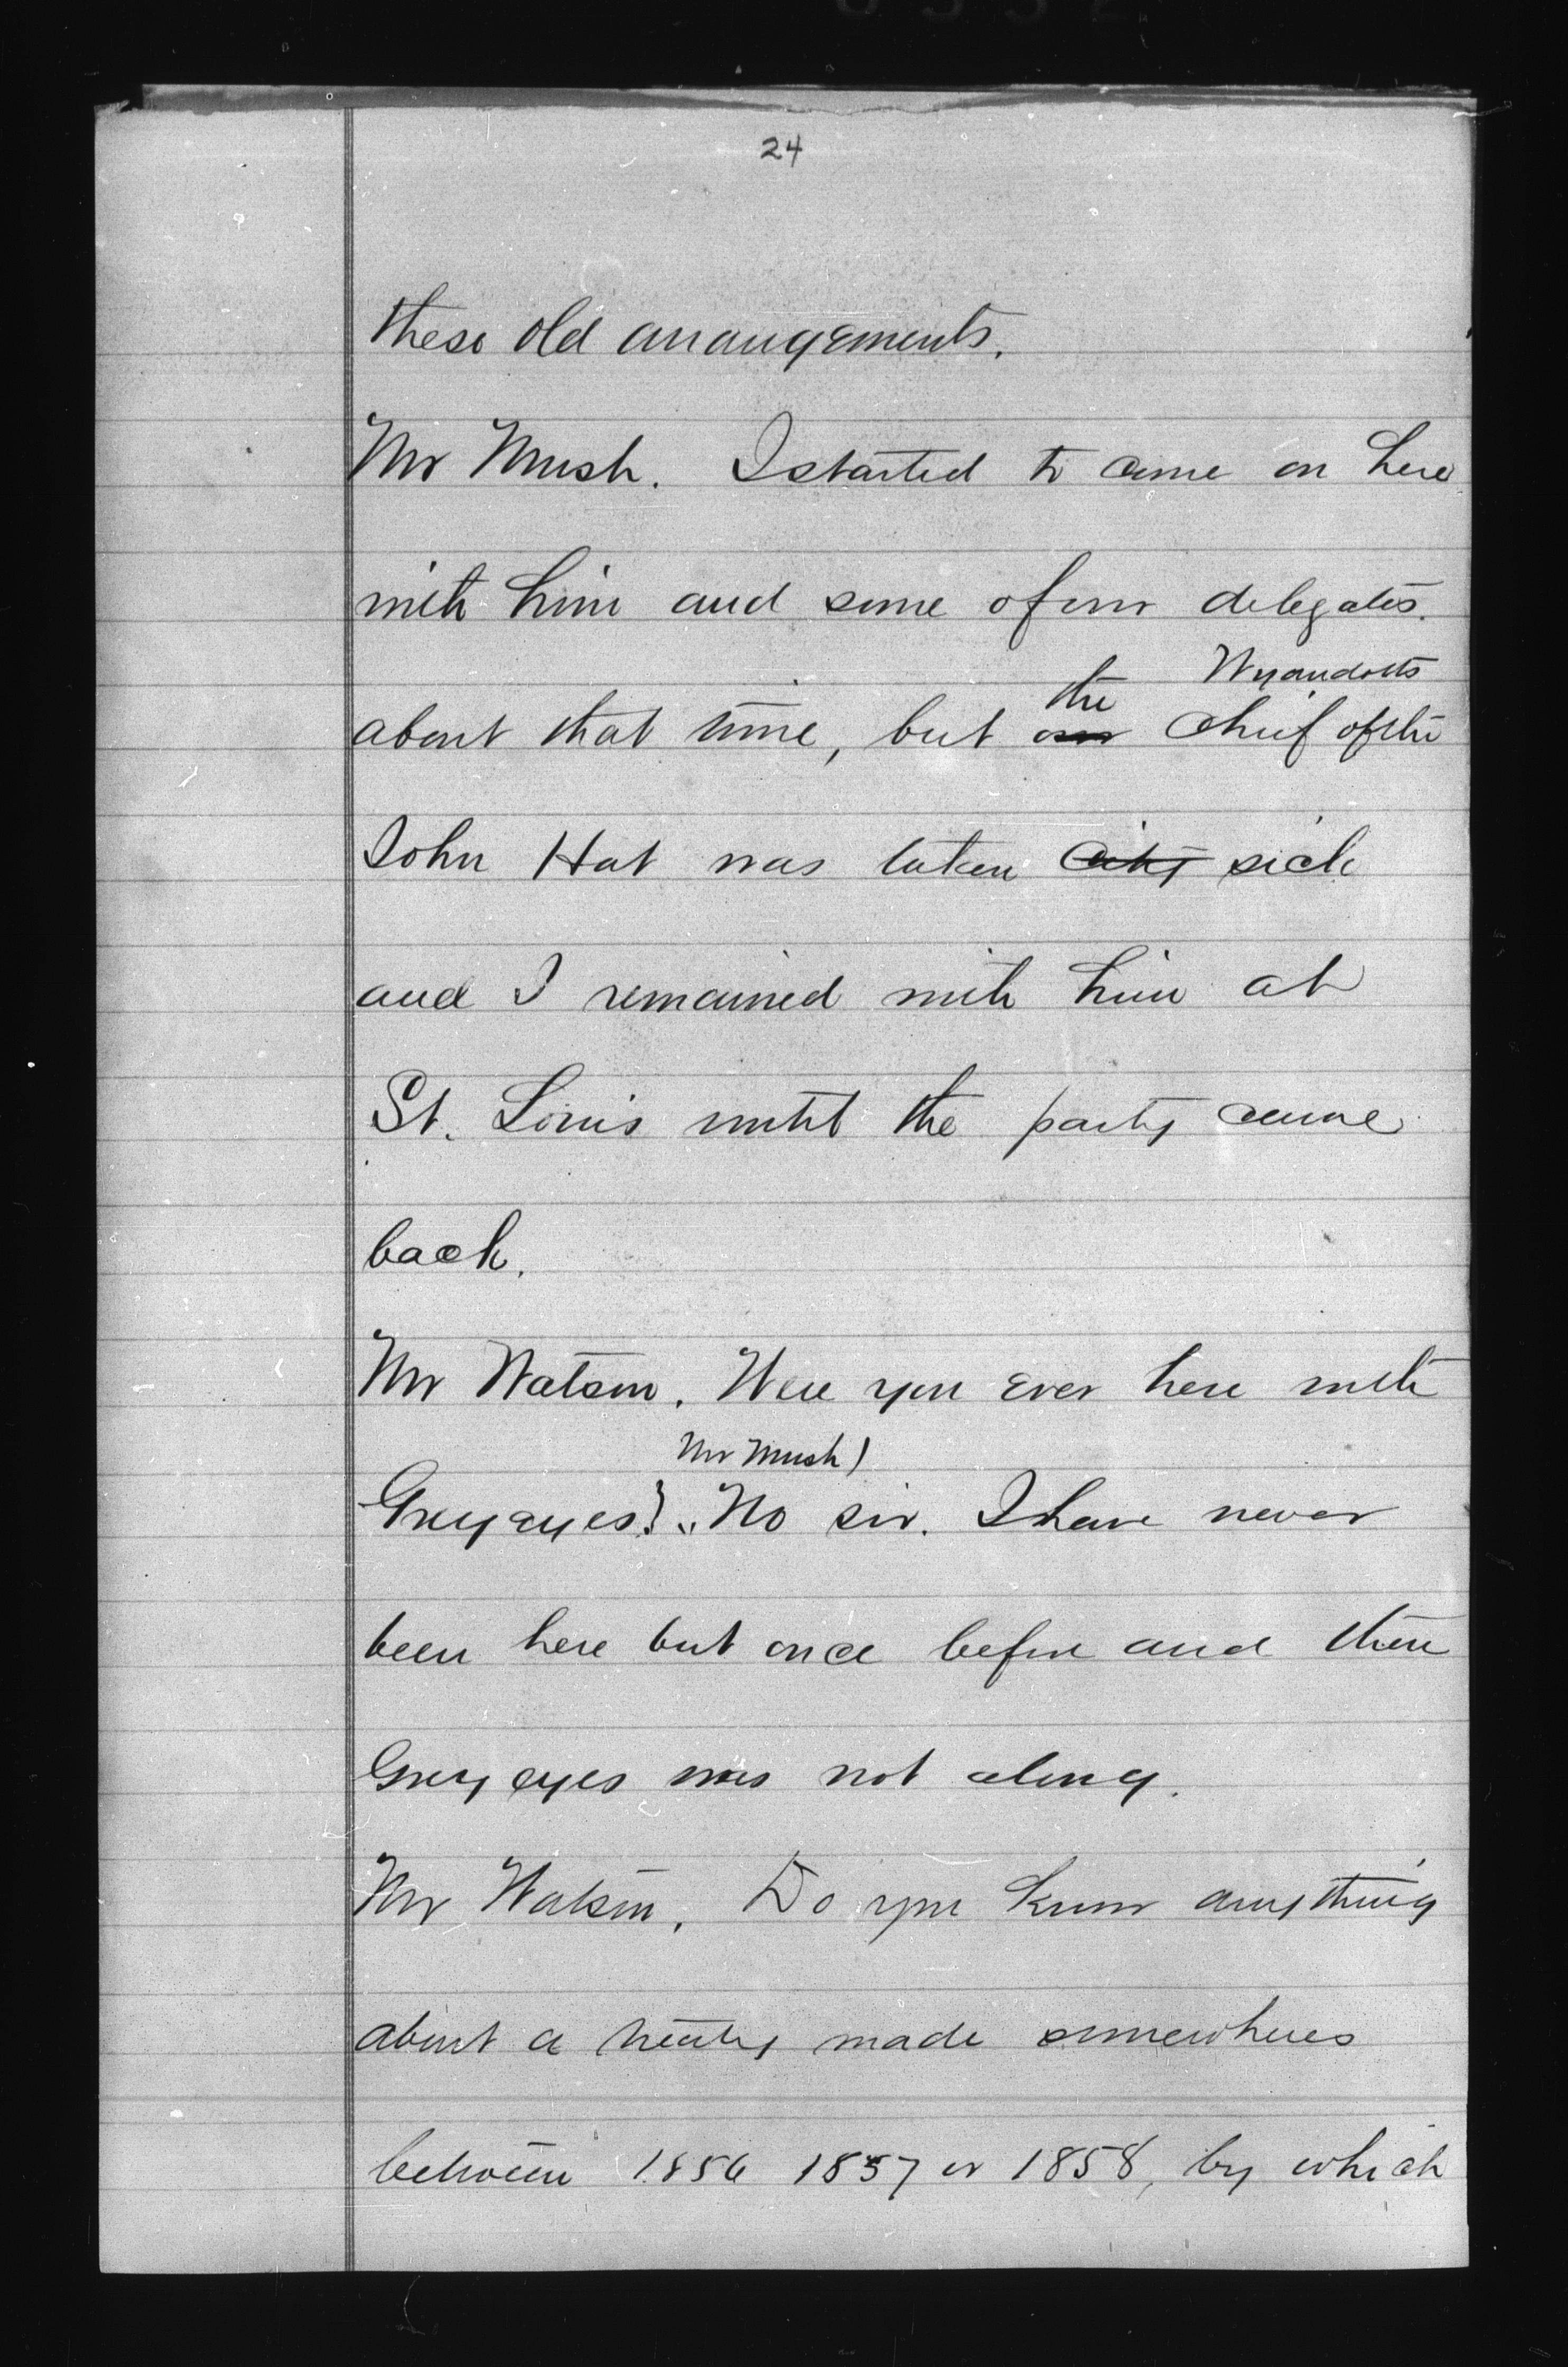 24
these old arrangements.
Mr Mush. I started to come on here
with him and some of our delegates.
about that time, but the chief of the Wyandotts
John Hat was taken city sick
and I remained with him at
St. Louis until the party came
back.
Mr Watson. Were you ever here with
Mr Mush)
Grey eyes? "No sir. I have never
been here but once before and then
Grey eyes was not along.
Mr Watson. Do you know anything
about a treaty made somewheres
between 1856 1857 or 1858, by which